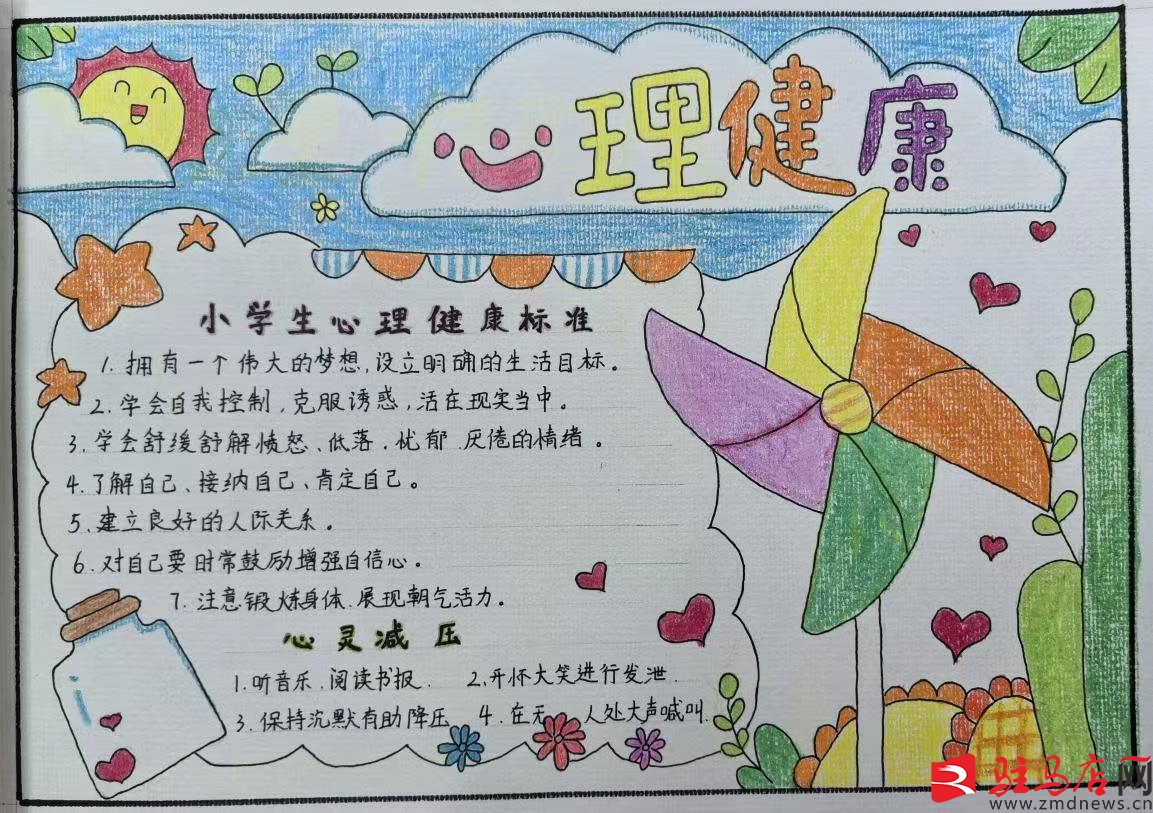 心理健康
小学生心理健康标准
1. 拥有一个伟大的梦想,设立明确的生活目标。
2. 学会自我控制,克服诱惑,活在现实当中。
3. 学会舒缓舒解愤怒、低落,忧郁 厌倦的情绪。
4. 了解自己、接纳自己、肯定自己。
5. 建立良好的人际关系。
6. 对自己要时常鼓励增强自信心。
7. 注意锻炼身体.展现朝气活力。
心灵减压
1. 听音乐.阅读书报. 2. 开怀大笑进行发泄.
3. 保持沉默有助降压 4. 在无 人处大声喊叫.
驻马店网
www.zmdnews.cn